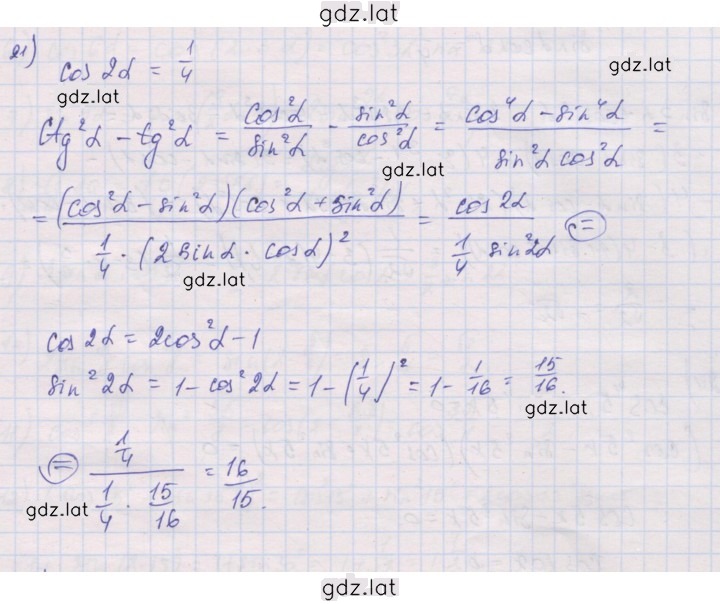 gdz.lat
21) cos 2α = 1/4
gdz.lat
gdz.lat
ctg²α − tg²α = cos²α/sin²α − sin²α/cos²α = (cos⁴α − sin⁴α)/(sin²α cos²α) =
gdz.lat
= (cos²α − sin²α)(cos²α + sin²α)/(1/4 · (2 sinα · cosα)²) = cos2α/(1/4 sin²2α) (=)
gdz.lat
cos 2α = 2cos²α − 1
sin² 2α = 1 − cos² 2α = 1 − (1/4)² = 1 − 1/16 = 15/16.
gdz.lat
(=) (1/4)/(1/4 · 15/16) = 16/15.
gdz.lat
gdz.lat